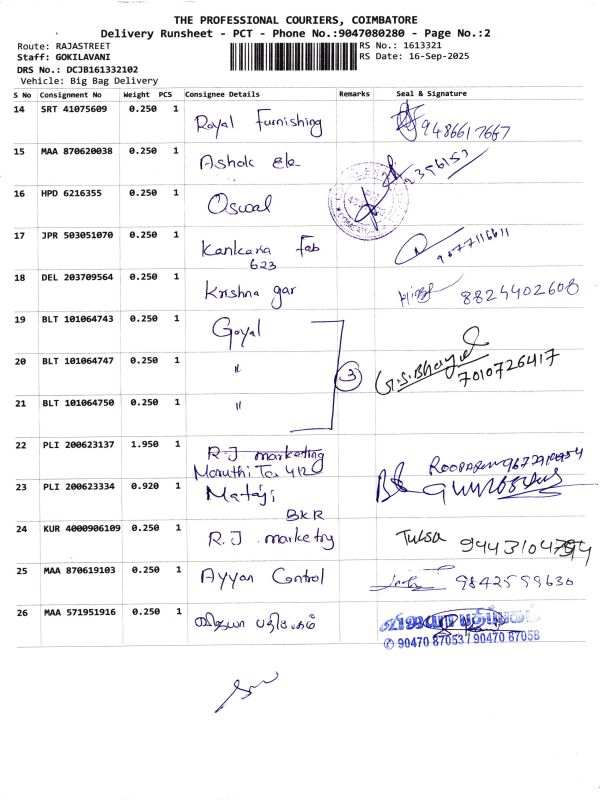 THE PROFESSIONAL COURIERS, COIMBATORE
Delivery Runsheet - PCT - Phone No.:9047080280 - Page No.:2
Route: RAJASTREET RS No.: 1613321
Staff: GOKILAVANI RS Date: 16-Sep-2025
DRS No.: DCJB161332102
Vehicle: Big Bag Delivery
S No Consignment No Weight PCS Consignee Details Remarks Seal & Signature
14 SRT 41075609 0.250 1 Royal Furnishing 9486617667
15 MAA 870620038 0.250 1 Ashok ele 2356153
16 HPD 6216355 0.250 1 Oswal
17 JPR 503051070 0.250 1 Kankaria Fab
623
18 DEL 203709564 0.250 1 Krishna gar 8824402608
19 BLT 101064743 0.250 1 Goyal
20 BLT 101064747 0.250 1 " 3 G.S.Bhayal 7010726417
21 BLT 101064750 0.250 1 "
22 PLI 200623137 1.950 1 R.J marketing
Maruthi Tex 412
23 PLI 200623334 0.920 1 Mataji
BKR
24 KUR 4000906109 0.250 1 R.J. marketry Tulsa
25 MAA 870619103 0.250 1 Ayyan Control 9842599630
26 MAA 571951916 0.250 1 விஜயா பதிப்பகம் விஜயா பதிப்பகம்
✆ 90470 87053 / 90470 87058